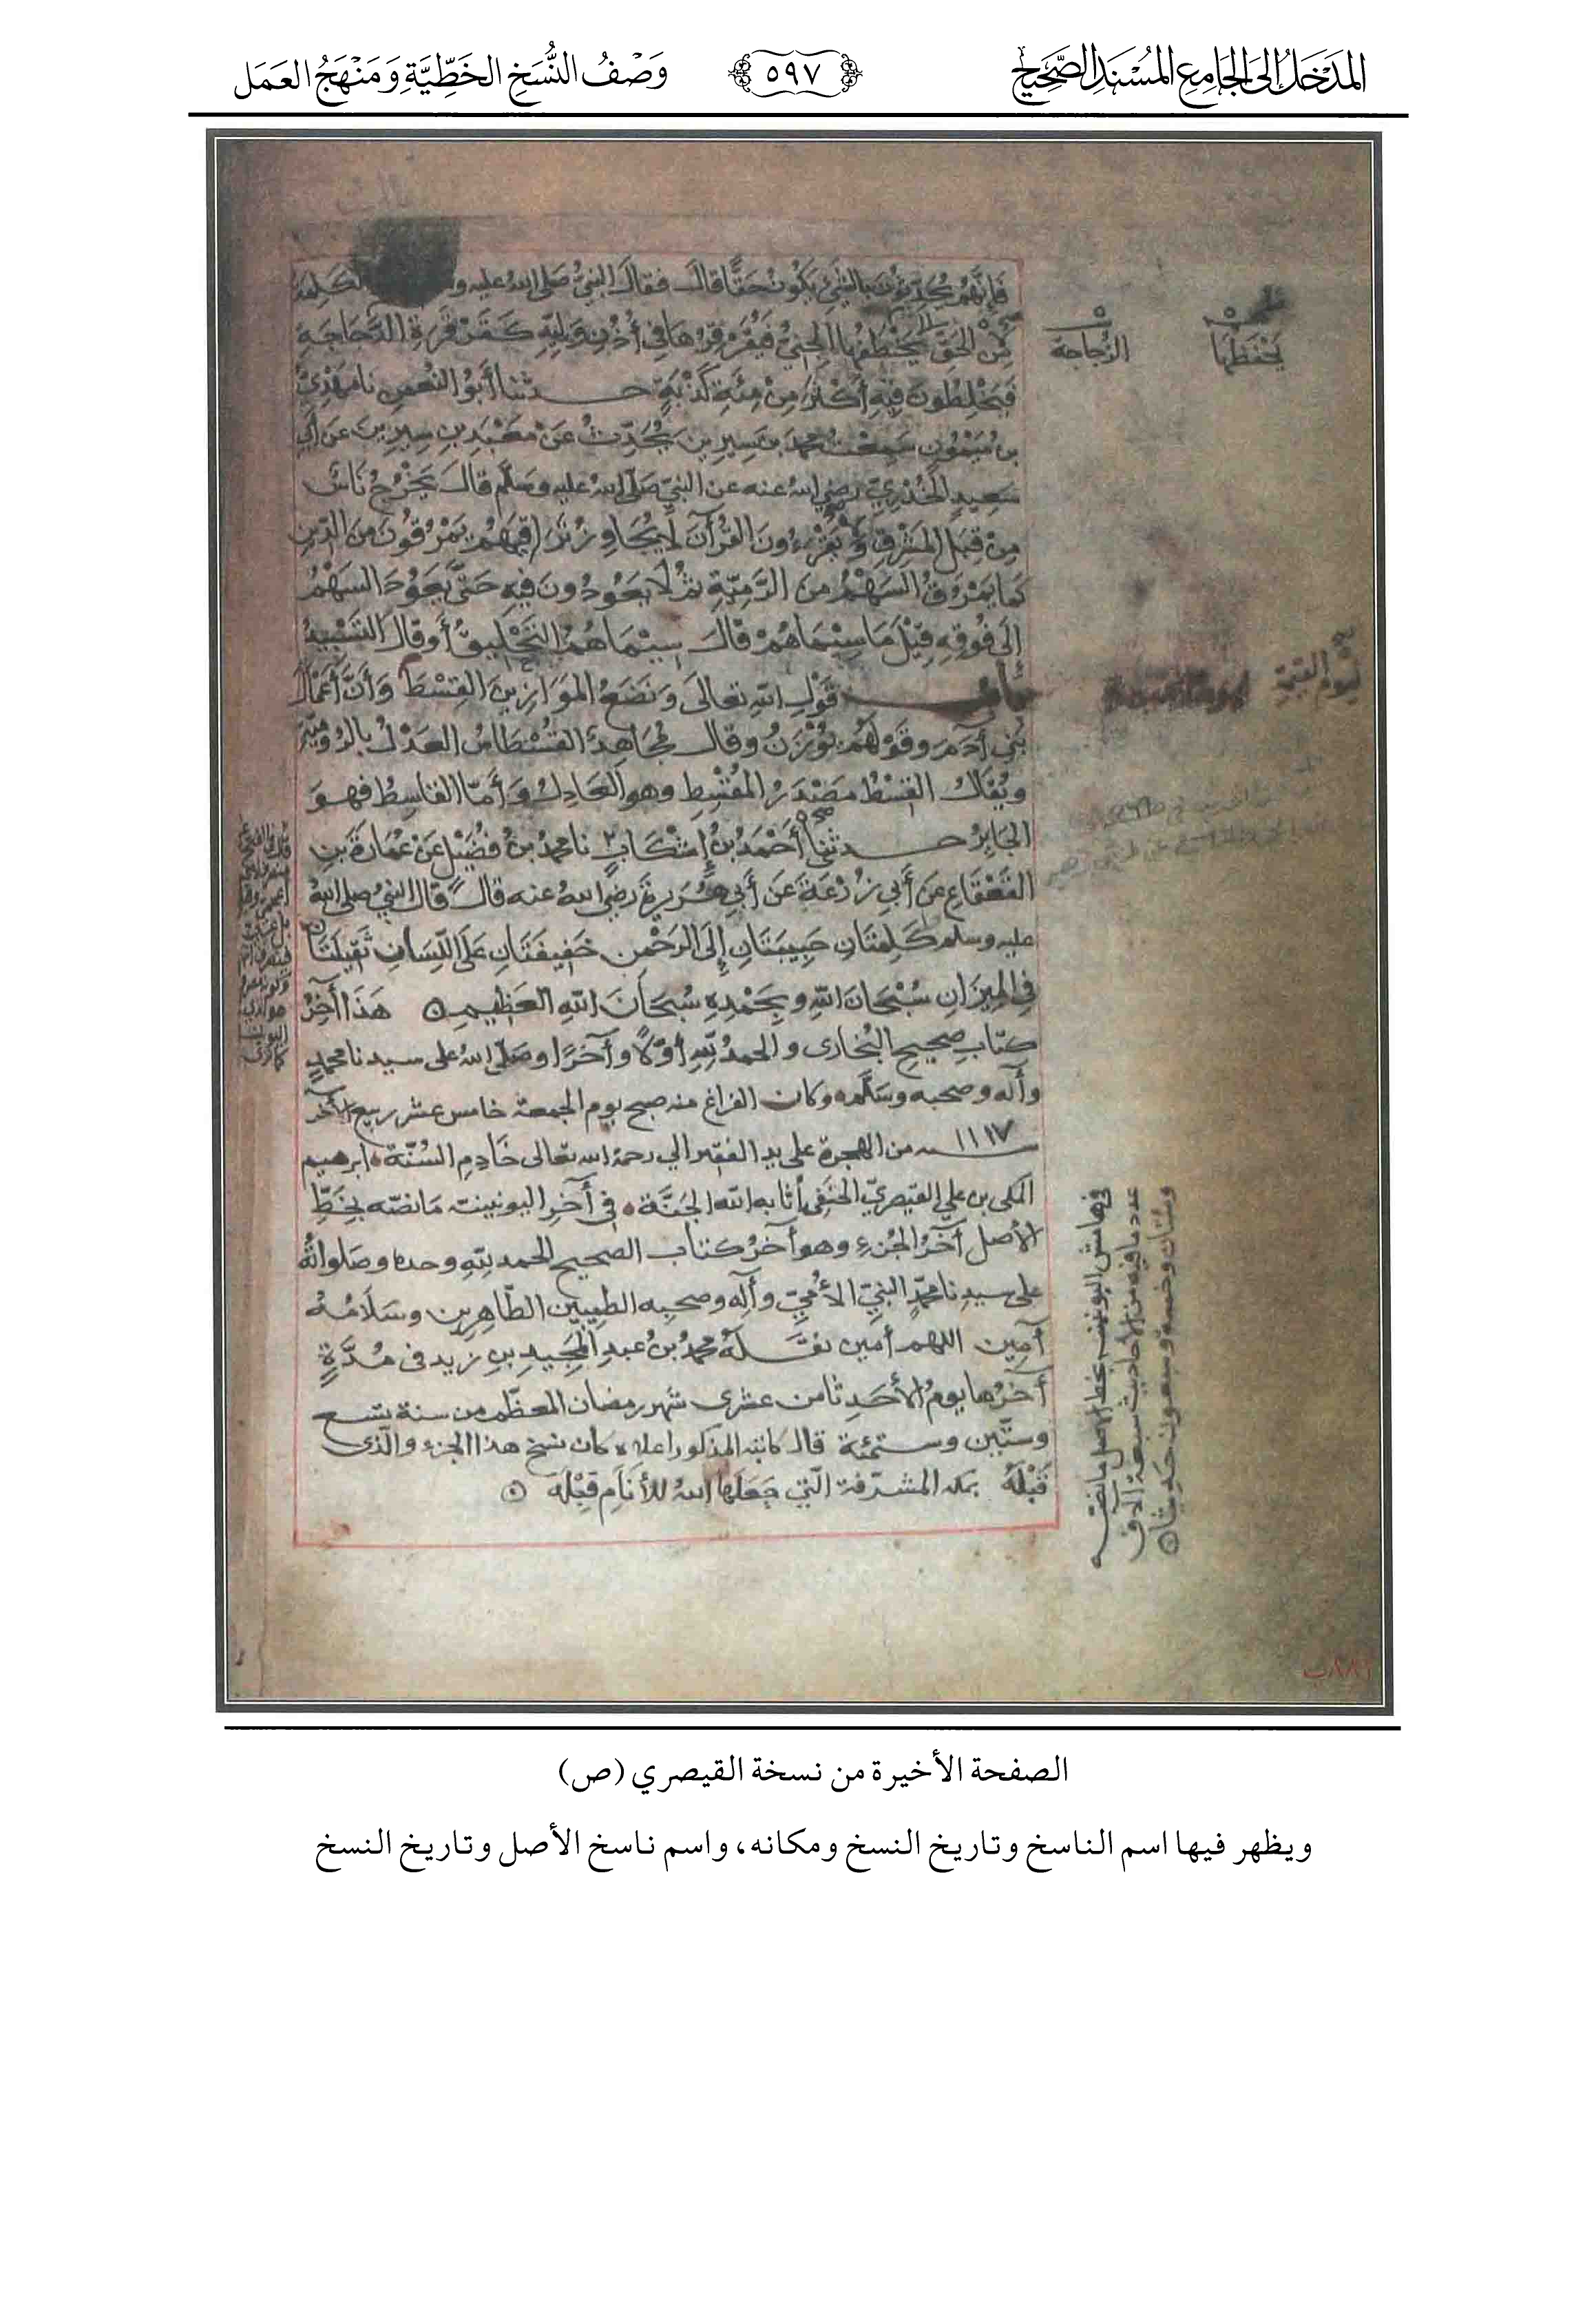 المدخل إلى الجامع المسند الصحيح
٥٩٧
وَصْفُ النُّسَخِ الخَطِّيَّةِ وَمَنْهَجُ العَمَل
فَإِنَّهُمْ يُحَدِّثُونَ بِالشَّيْءِ يَكُونُ حَقًّا قَالَ فَقَالَ النَّبِيُّ صَلَّى اللهُ عليه و الكَلِمَة
مِنَ الحَقِّ يَخْطَفُهَا الجِنِّيُّ فَيُقَرْقِرُهَا فِي أُذُنِ وَلِيِّهِ كَقَرْقَرَةِ الدَّجَاجَةِ
فَيَخْلِطُونَ فِيهِ أَكْثَرَ مِنْ مِئَةِ كَذْبَةٍ حدثنا أَبُو النُّعْمَنِ نا مَهْدِيُّ
بنُ مَيْمُونٍ سَمِعْتُ محمدَ بنَ سِيرِينَ يُحَدِّثُ عَنْ مَعْبَدِ بنِ سِيرِينَ عَن أَبِي
سَعِيدٍ الخُدْرِيِّ رضي الله عنه عن النبيِّ صَلَّى الله عليه وسَلَّم قَالَ يَخْرُجُ نَاسٌ
مِنْ قِبَلِ المَشْرِقِ وَيَقْرَءُونَ القُرْآنَ لَا يُجَاوِزُ تَرَاقِيَهُمْ يَمْرُقُونَ مِنَ الدِّينِ
كَمَا يَمْرُقُ السَّهْمُ مِنَ الرَّمِيَّةِ ثُمَّ لَا يَعُودُونَ فِيهِ حَتَّى يَعُودَ السَّهْمُ
إِلَى فُوقِهِ قِيلَ مَا سِيمَاهُمْ قَالَ سِيمَاهُمُ التَّحْلِيقُ أَوْ قَالَ التَّسْبِيدُ
باب قَوْلِ اللهِ تعالى وَنَضَعُ المَوَازِينَ القِسْطَ وَأَنَّ أَعْمَالَ
بَنِي آدَمَ وَقَوْلَهُمْ يُوزَنُ وقال مُجَاهِدٌ القُسْطَاسُ العَدْلُ بالرُّومِيَّةِ
ويُقَالُ القِسْطُ مَصْدَرُ المُقْسِطِ وهو العَادِلُ وَأَمَّا القَاسِطُ فهو
الجَائِرُ حدثني أَحْمَدُ بنُ إِشْكَابٍ نا محمدُ بنُ فُضَيْلٍ عَنْ عُمَارَةَ بنِ
القَعْقَاعِ عَن أَبِي زُرْعَةَ عَن أَبِي هُرَيرةَ رضي الله عنه قال قال النبيُّ صلى الله
عليه وسلم كَلِمَتَانِ حَبِيبَتَانِ إِلَى الرَّحْمَنِ خَفِيفَتَانِ عَلَى اللِّسَانِ ثَقِيلَتَانِ
فِي المِيزَانِ سُبْحَانَ اللهِ وبِحَمْدِهِ سُبْحَانَ اللهِ العَظِيمِ هَذَا آخِرُ
كتابِ صحيحِ البُخَارى والحمدُ للهِ أوَّلًا وآخرًا وصَلَّى الله على سيدنا محمدٍ
وآله وصحبه وسَلَّم وكان الفراغ منه صبح يوم الجمعة خامس عشر ربيع الآخر
سنة ١١١٧ من الهجرة على يد الفقير الي رحمة الله تعالى خَادِمِ السُّنَّة ابرهيم
المكي بن علي القيصريّ الحنفي أثابه الله الجَنَّة في آخرِ اليونينية مَا نصّه بِخَطِّ
الأصل آخرُ الجُزءِ وهو آخرُ كتاب الصحيح الحمد للهِ وحده وصَلواتُهُ
على سيدِنا محمدٍ النبيِّ الأُمِّيِّ وآلِه وصحبِه الطيبين الطَّاهِرِين وسَلَامُهُ
آمِين اللهم آمين نقَلَهُ محمدُ بنُ عبدِ المجيدِ بنِ زيد فى مُدَّةٍ
آخرُها يومُ الأَحَدِ ثامن عشرى شهر رمضان المعظّم من سنة تسع
وستّين وستمئة قال كاتبه المذكور اعلاه كان نسخ هذا الجزء والّذى
قَبْلَهُ بمكة المشرّفة الّتي جَعَلَها اللهُ للأَنَامِ قِبْلَة
يَحْفَظُهَا
الزُّجاجة
لِيَوْمِ القيمةِ
في هامش اليونينية بخط الاصل ما نصّه
عدد ما فيه من الاحاديث سبعة آلاف
ومئتان وخمسة وسبعون حديثا
٨٨١ب
الصفحة الأخيرة من نسخة القيصري (ص)
ويظهر فيها اسم الناسخ وتاريخ النسخ ومكانه، واسم ناسخ الأصل وتاريخ النسخ